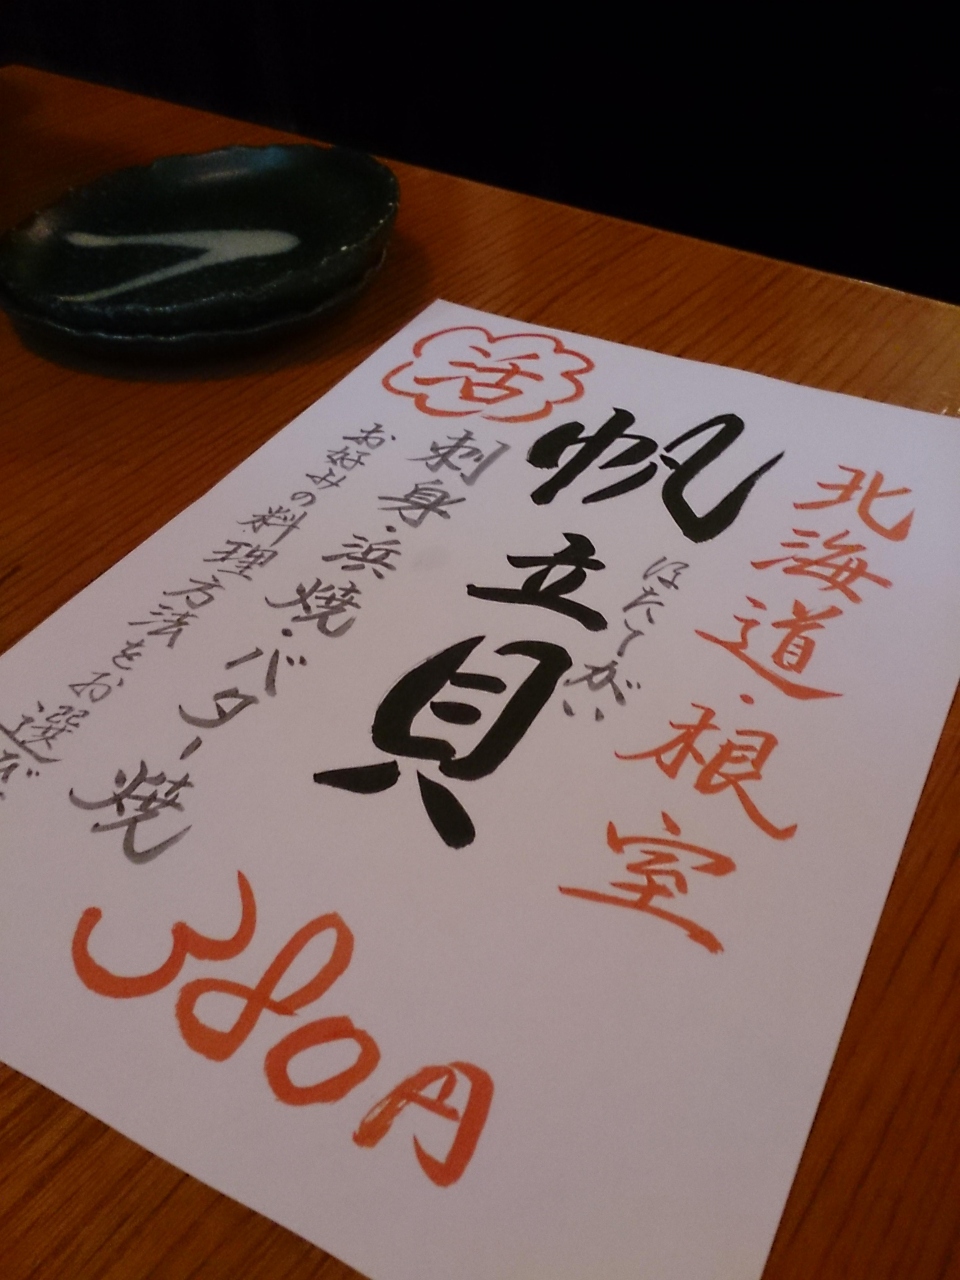 北海道・根室
ほたてがい
帆立貝
活
刺身・浜焼・バター焼
お好みの料理方法をお選び
380円